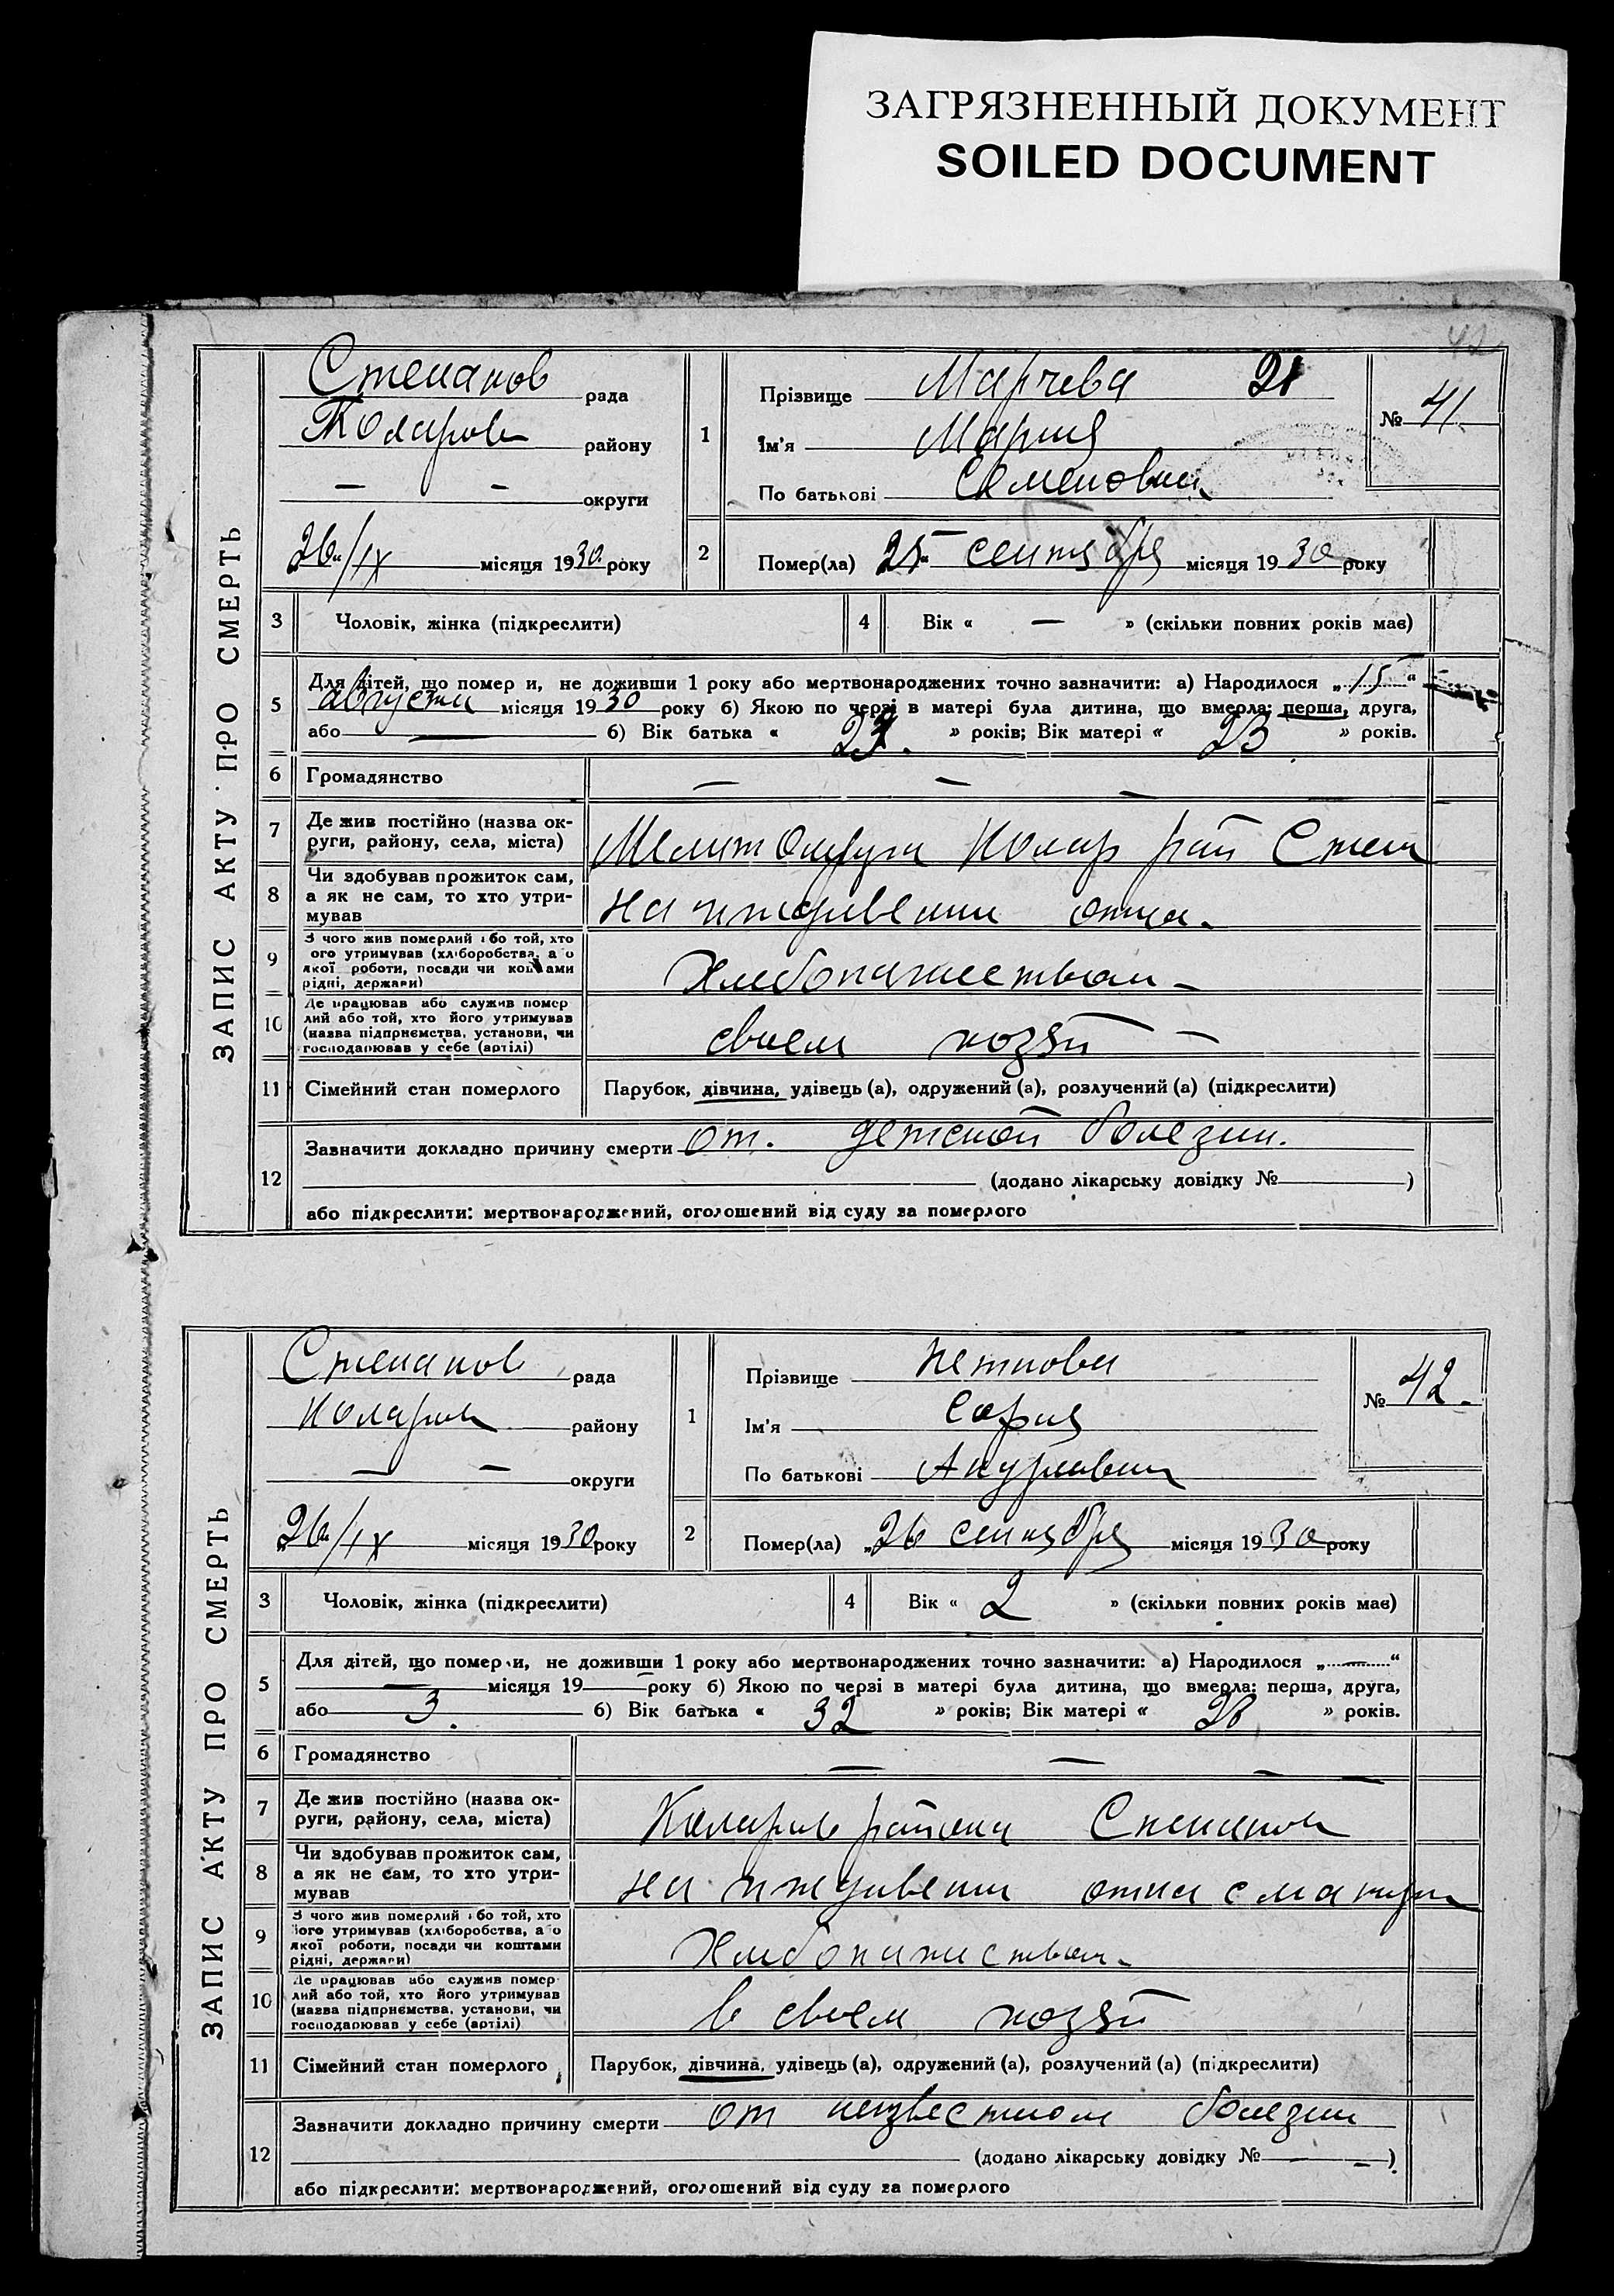 ЗАГРЯЗНЕННЫЙ ДОКУМЕНТ
SOILED DOCUMENT
42
ЗАПИС АКТУ ПРО СМЕРТЬ
Степанов рада
Коларов району
— — округи
26/IX місяця 1930 року
1
Прізвище Марчева 21
Ім'я Мария
По батькові Семеновна
№ 41.
2 Помер(ла) 25 сентября місяця 1930 року
3 Чоловік, жінка (підкреслити)
4 Вік « — » (скільки повних років має)
5 Для дітей, що помер и, не доживши 1 року або мертвонароджених точно зазначити: а) Народилося „15“
августа місяця 1930 року б) Якою по черзі в матері була дитина, що вмерла: перша, друга,
або — б) Вік батька « 23. » років; Вік матері « 23 » років.
6 Громадянство — — —
7 Де жив постійно (назва ок-
руги, району, села, міста) Мелит Округи Колар рай Степ
8 Чи здобував прожиток сам,
а як не сам, то хто утри-
мував на иждивении отца.
9 З чого жив померлий або той, хто
ого утримував (хліборобства, або
якої роботи, посади чи коштами
рідні, держави) Хлебопашеством
10 Де працював або служив помер
лий або той, хто його утримував
(назва підприємства, установи, чи
господарював у себе (артілі) своем хозяй —
11 Сімейний стан померлого Парубок, дівчина, удівець (а), одружений (а), розлучений (а) (підкреслити)
12 Зазначити докладно причину смерти от. детской болезни.
(додано лікарську довідку № )
або підкреслити: мертвонароджений, оголошений від суду за померлого
ЗАПИС АКТУ ПРО СМЕРТЬ
Степанов рада
Коларов району
— — округи
„26/IX місяця 1930 року
1
Прізвище Петкова
Ім'я София
По батькові
№ 42.
2 Помер(ла) „26 сентября місяця 1930 року
3 Чоловік, жінка (підкреслити)
4 Вік « 2 » (скільки повних років має)
5 Для дітей, що помер и, не доживши 1 року або мертвонароджених точно зазначити: а) Народилося „—“
— місяця 19— року б) Якою по черзі в матері була дитина, що вмерла: перша, друга,
або 3. б) Вік батька « 32 » років; Вік матері « 28 » років.
6 Громадянство — — — —
7 Де жив постійно (назва ок-
руги, району, села, міста) Коларов района Степанов
8 Чи здобував прожиток сам,
а як не сам, то хто утри-
мував на иждивении отца с матери
9 З чого жив померлий або той, хто
його утримував (хліборобства, або
якої роботи, посади чи коштами
рідні, держави) Хлебопашеством.
10 Де працював або служив помер
лий або той, хто його утримував
(назва підприємства, установи, чи
господарював у себе (артілі) в своем хозяй
11 Сімейний стан померлого Парубок, дівчина, удівець (а), одружений (а), розлучений (а) (підкреслити)
12 Зазначити докладно причину смерти от неизвестной болезни
(додано лікарську довідку № — —)
або підкреслити: мертвонароджений, оголошений від суду за померлого